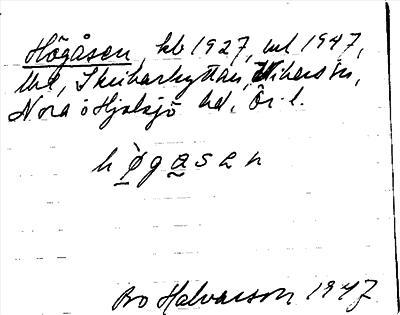 Högåsen, kb 1927, ml 1947,
Uhl, Skrikarhyttan, Vikers sn,
Nora o Hjulsjö hd, Ör. l.
högasen
Bo Halvarson 1947